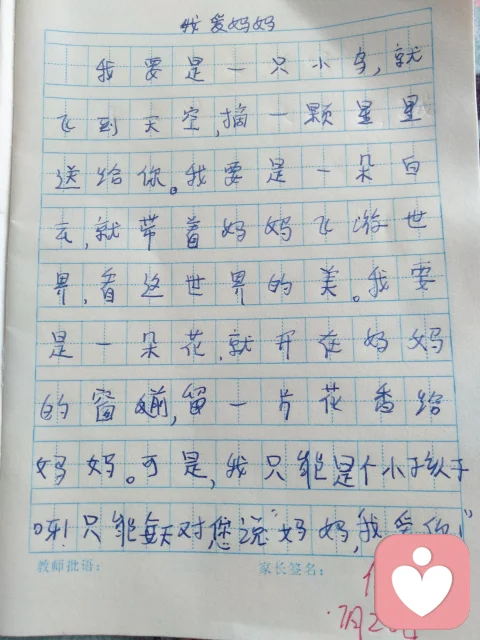 我爱妈妈
我要是一只小鸟,就
飞到天空,摘一颗星星
送给你。我要是一朵白
云,就带着妈妈飞游世
界,看这世界的美。我要
是一朵花,就开在妈妈
的窗前,留一片花香给
妈妈。可是,我只能是个小
呀!只能每天对您说“妈妈,我爱你!”
教师批语: 家长签名:
7月2